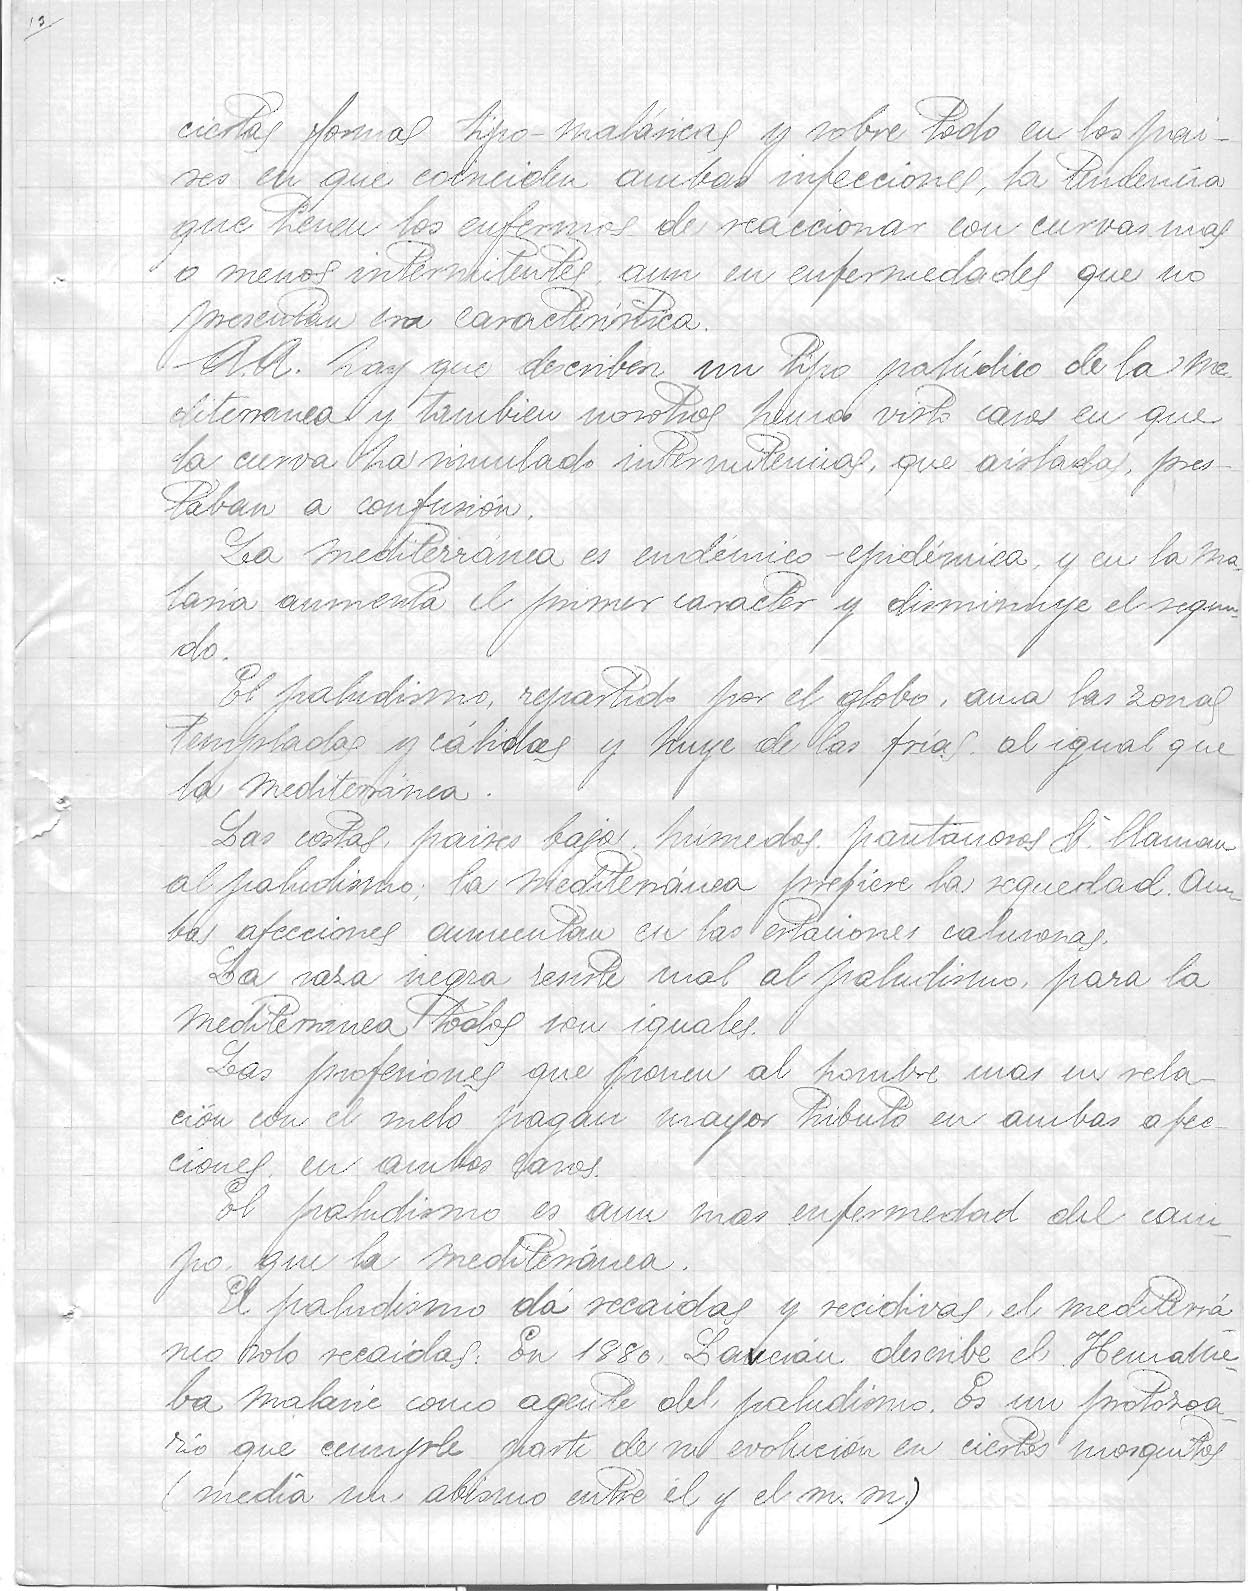 13
ciertas formas tipo-maláricas y sobre todo en los pai-
ses en que coinciden ambas infecciones, la tendencia
que tienen los enfermos de reaccionar con curvas mas
o menos intermitentes, aun en enfermedades que no
presentan esa característica.
AA. hay que describen un tipo palúdico de la Me-
diterranea y tambien nosotros hemos visto casos en que
la curva ha simulado intermitencias, que aisladas, pres-
taban a confusión.
La Mediterránea es endémico-epidémica, y en la Ma-
laria aumenta el primer caracter y disminuye el segun-
do.
El paludismo, repartido por el globo, ama las zonas
templadas y cálidas y huye de las frias. al igual que
la Mediterránea.
Las costas, paises bajos, húmedos, pantanosos llaman
al paludismo; la Mediterránea prefiere la sequedad. Am-
bas afecciones aumentan en las estaciones calurosas.
La raza negra resiste mal al paludismo, para la
Mediterranea todos son iguales.
Las profesiones que ponen al hombre mas en rela-
ción con el suelo pagan mayor tributo en ambas afec-
ciones, en ambos casos.
El paludismo es aun mas enfermedad del cam-
po, que la Mediterránea.
El paludismo dá recaidas y recidivas, el mediterrá
neo solo recaidas. En 1880, Laverán describe el Hematie-
ba Malarie como agente del paludismo. Es un protozoa-
rio que cumple parte de su evolución en ciertos mosquitos
(media un abismo entre él y el m. m.)